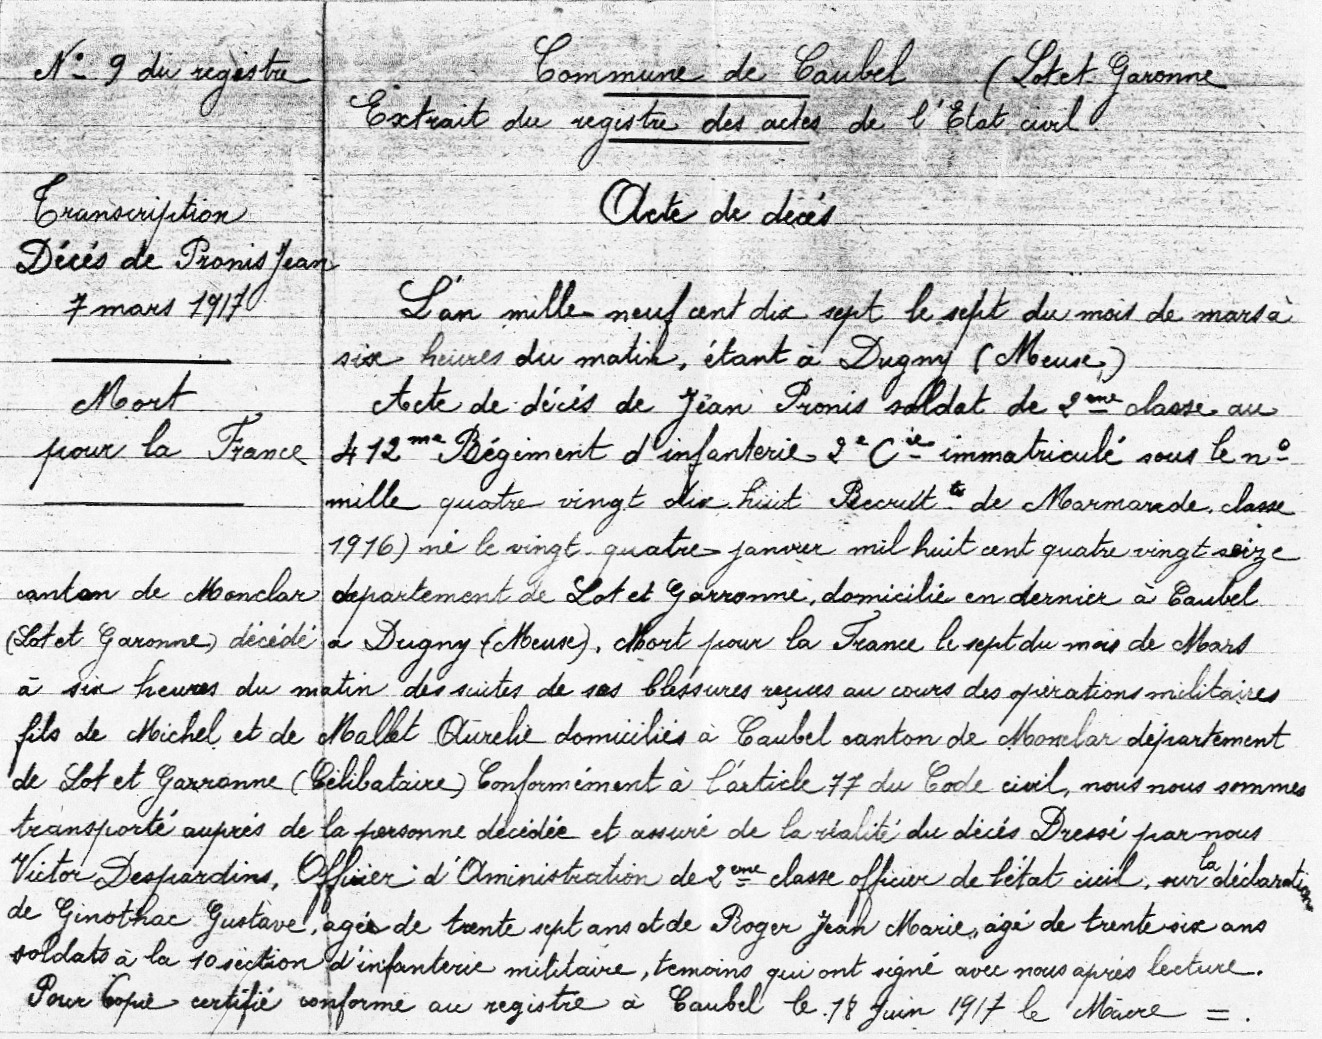 N° 9 du registre
Commune de Caubel (Lot et Garonne
Extrait du registre des actes de l'Etat civil.
Transcription
Décés de Pronis Jean
7 mars 1917
Mort
pour la France
Acte de décés
L'an mille neuf cent dix sept le sept du mois de mars à
six heures du matin, étant à Dugny (Meuse)
Acte de décés de Jean Pronis soldat de 2eme classe au
412me Régiment d'infanterie 2e Cie immatriculé sous le n°
mille quatre vingt dix huit Recrutt de Marmande. classe
1916) né le vingt quatre janvier mil huit cent quatre vingt seize
canton de Monclar departement de Lot et Garronne, domicilié en dernier à Caubel
(Lot et Garonne) décédé a Dugny (Meuse). Mort pour la France le sept du mois de Mars
à six heures du matin des suites de ses blessures reçues au cours des opérations militaires
fils de Michel et de Mallet Aurelie domiciliés à Caubel canton de Monclar département
de Lot et Garronne (Célibataire) Conformément à l'article 77 du Code civil, nous nous sommes
transporté auprés de la personne décédée et assuré de la réalité du décés Dressé par nous
Victor Desjardins, Officier d'Aministration de 2eme classe officier de l'état civil, sur la déclaration
de Ginothac Gustave, agée de trente sept ans et de Roger Jean Marie, agé de trente six ans
soldats à la 10 section d'infanterie militaire, temoins qui ont signé avec nous aprés lecture.
Pour Copie certifié conforme au registre à Caubel le 18 Juin 1917 le Maire = .